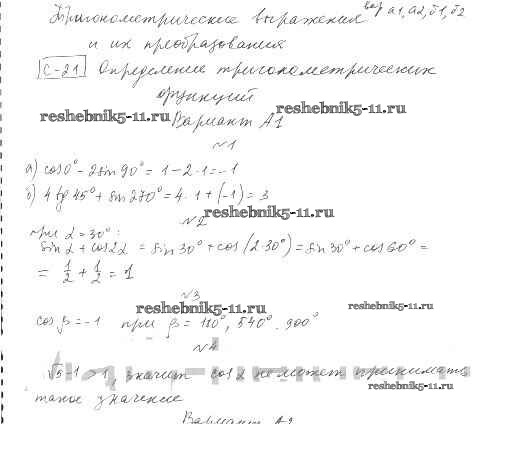 Тригонометрические выражения вар а1, а2, б1, б2
и их преобразования
С-21 Определение тригонометрических
функций
reshebnik5-11.ru
reshebnik5-11.ru
Вариант А1
№1
а) cos0° - 2sin90° = 1 - 2·1 = -1
б) 4 tg 45° + sin 270° = 4·1 + (-1) = 3
reshebnik5-11.ru
№2
при α = 30°:
sin α + cos2α = sin 30° + cos (2·30°) = sin 30° + cos 60° =
= 1/2 + 1/2 = 1
№3
reshebnik5-11.ru
reshebnik5-11.ru
cos β = -1 при β = 180°, 540°, 900°
№4
√5-1 > 1, значит cos α не может принимать
reshebnik5-11.ru
такое значение
Вариант А2